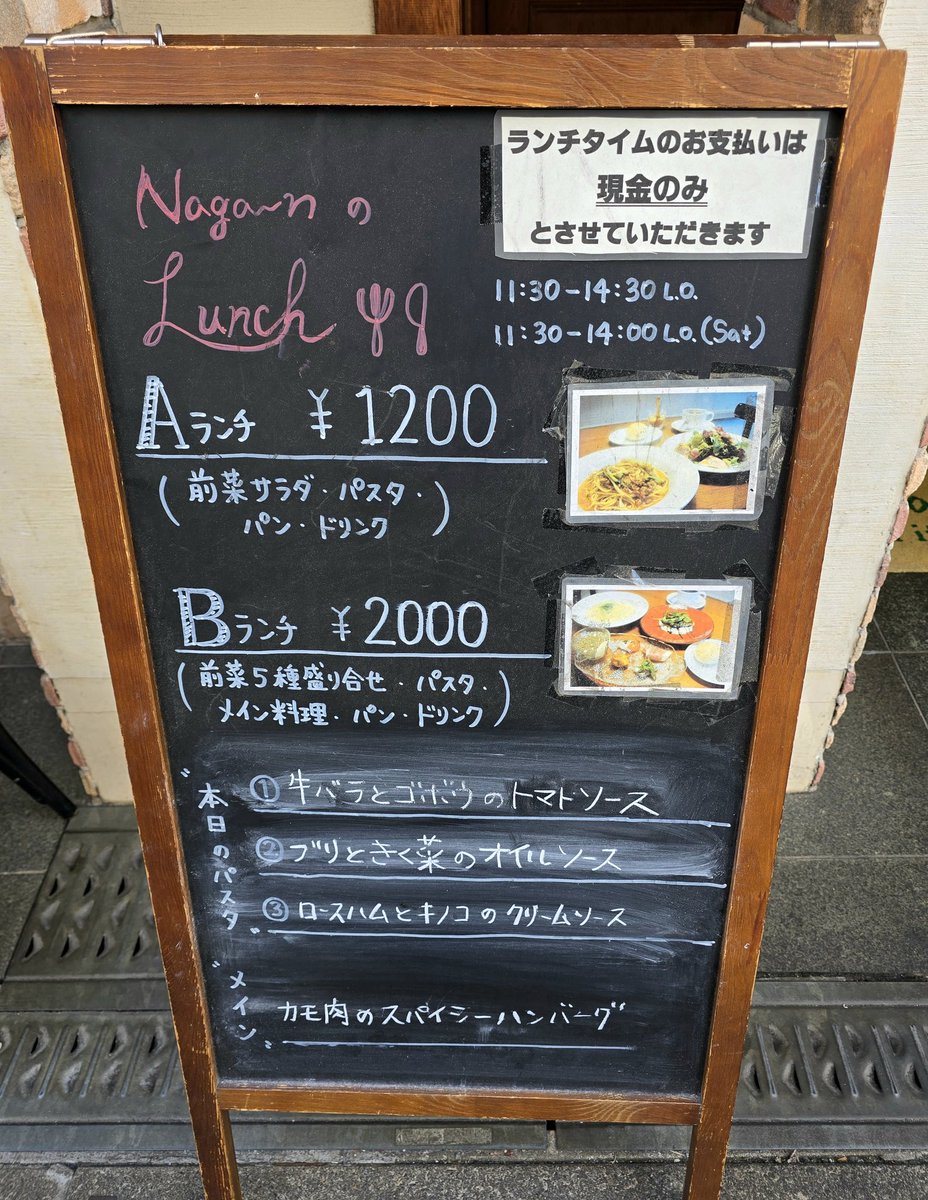 Naga~n の
Lunch
ランチタイムのお支払いは
現金のみ
とさせていただきます
11:30-14:30 L.O.
11:30-14:00 L.O.(Sat)
Aランチ ¥1200
(前菜サラダ・パスタ・
パン・ドリンク)
Bランチ ¥2000
(前菜5種盛り合せ・パスタ・
メイン料理・パン・ドリンク)
"本日のパスタ"
①牛バラとゴボウのトマトソース
②ブリときく菜のオイルソース
③ロースハムとキノコのクリームソース
"メイン"
カモ肉のスパイシーハンバーグ